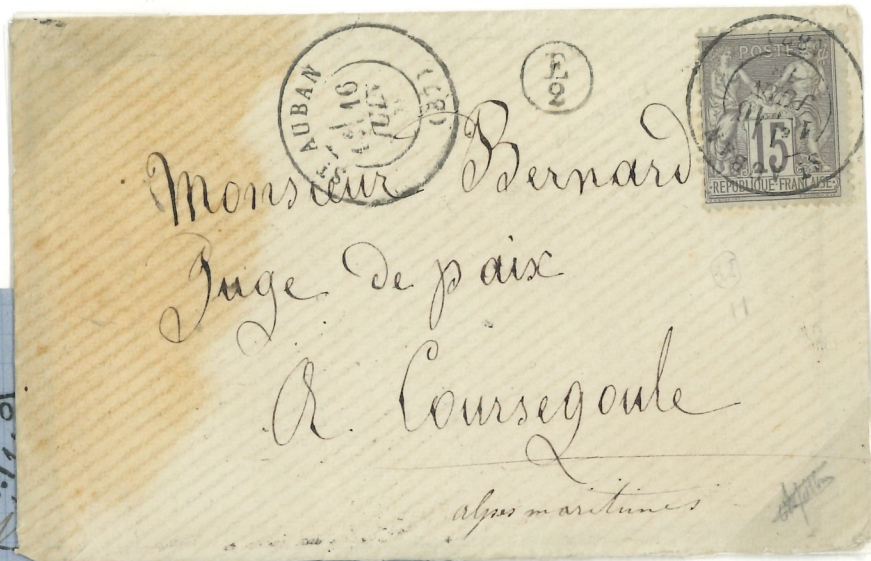 ST AUBAN (87)
16
E
2
POSTES
15
REPUBLIQUE FRANÇAISE
Monsieur Bernard
Juge de paix
A Coursegoule
alpes maritimes